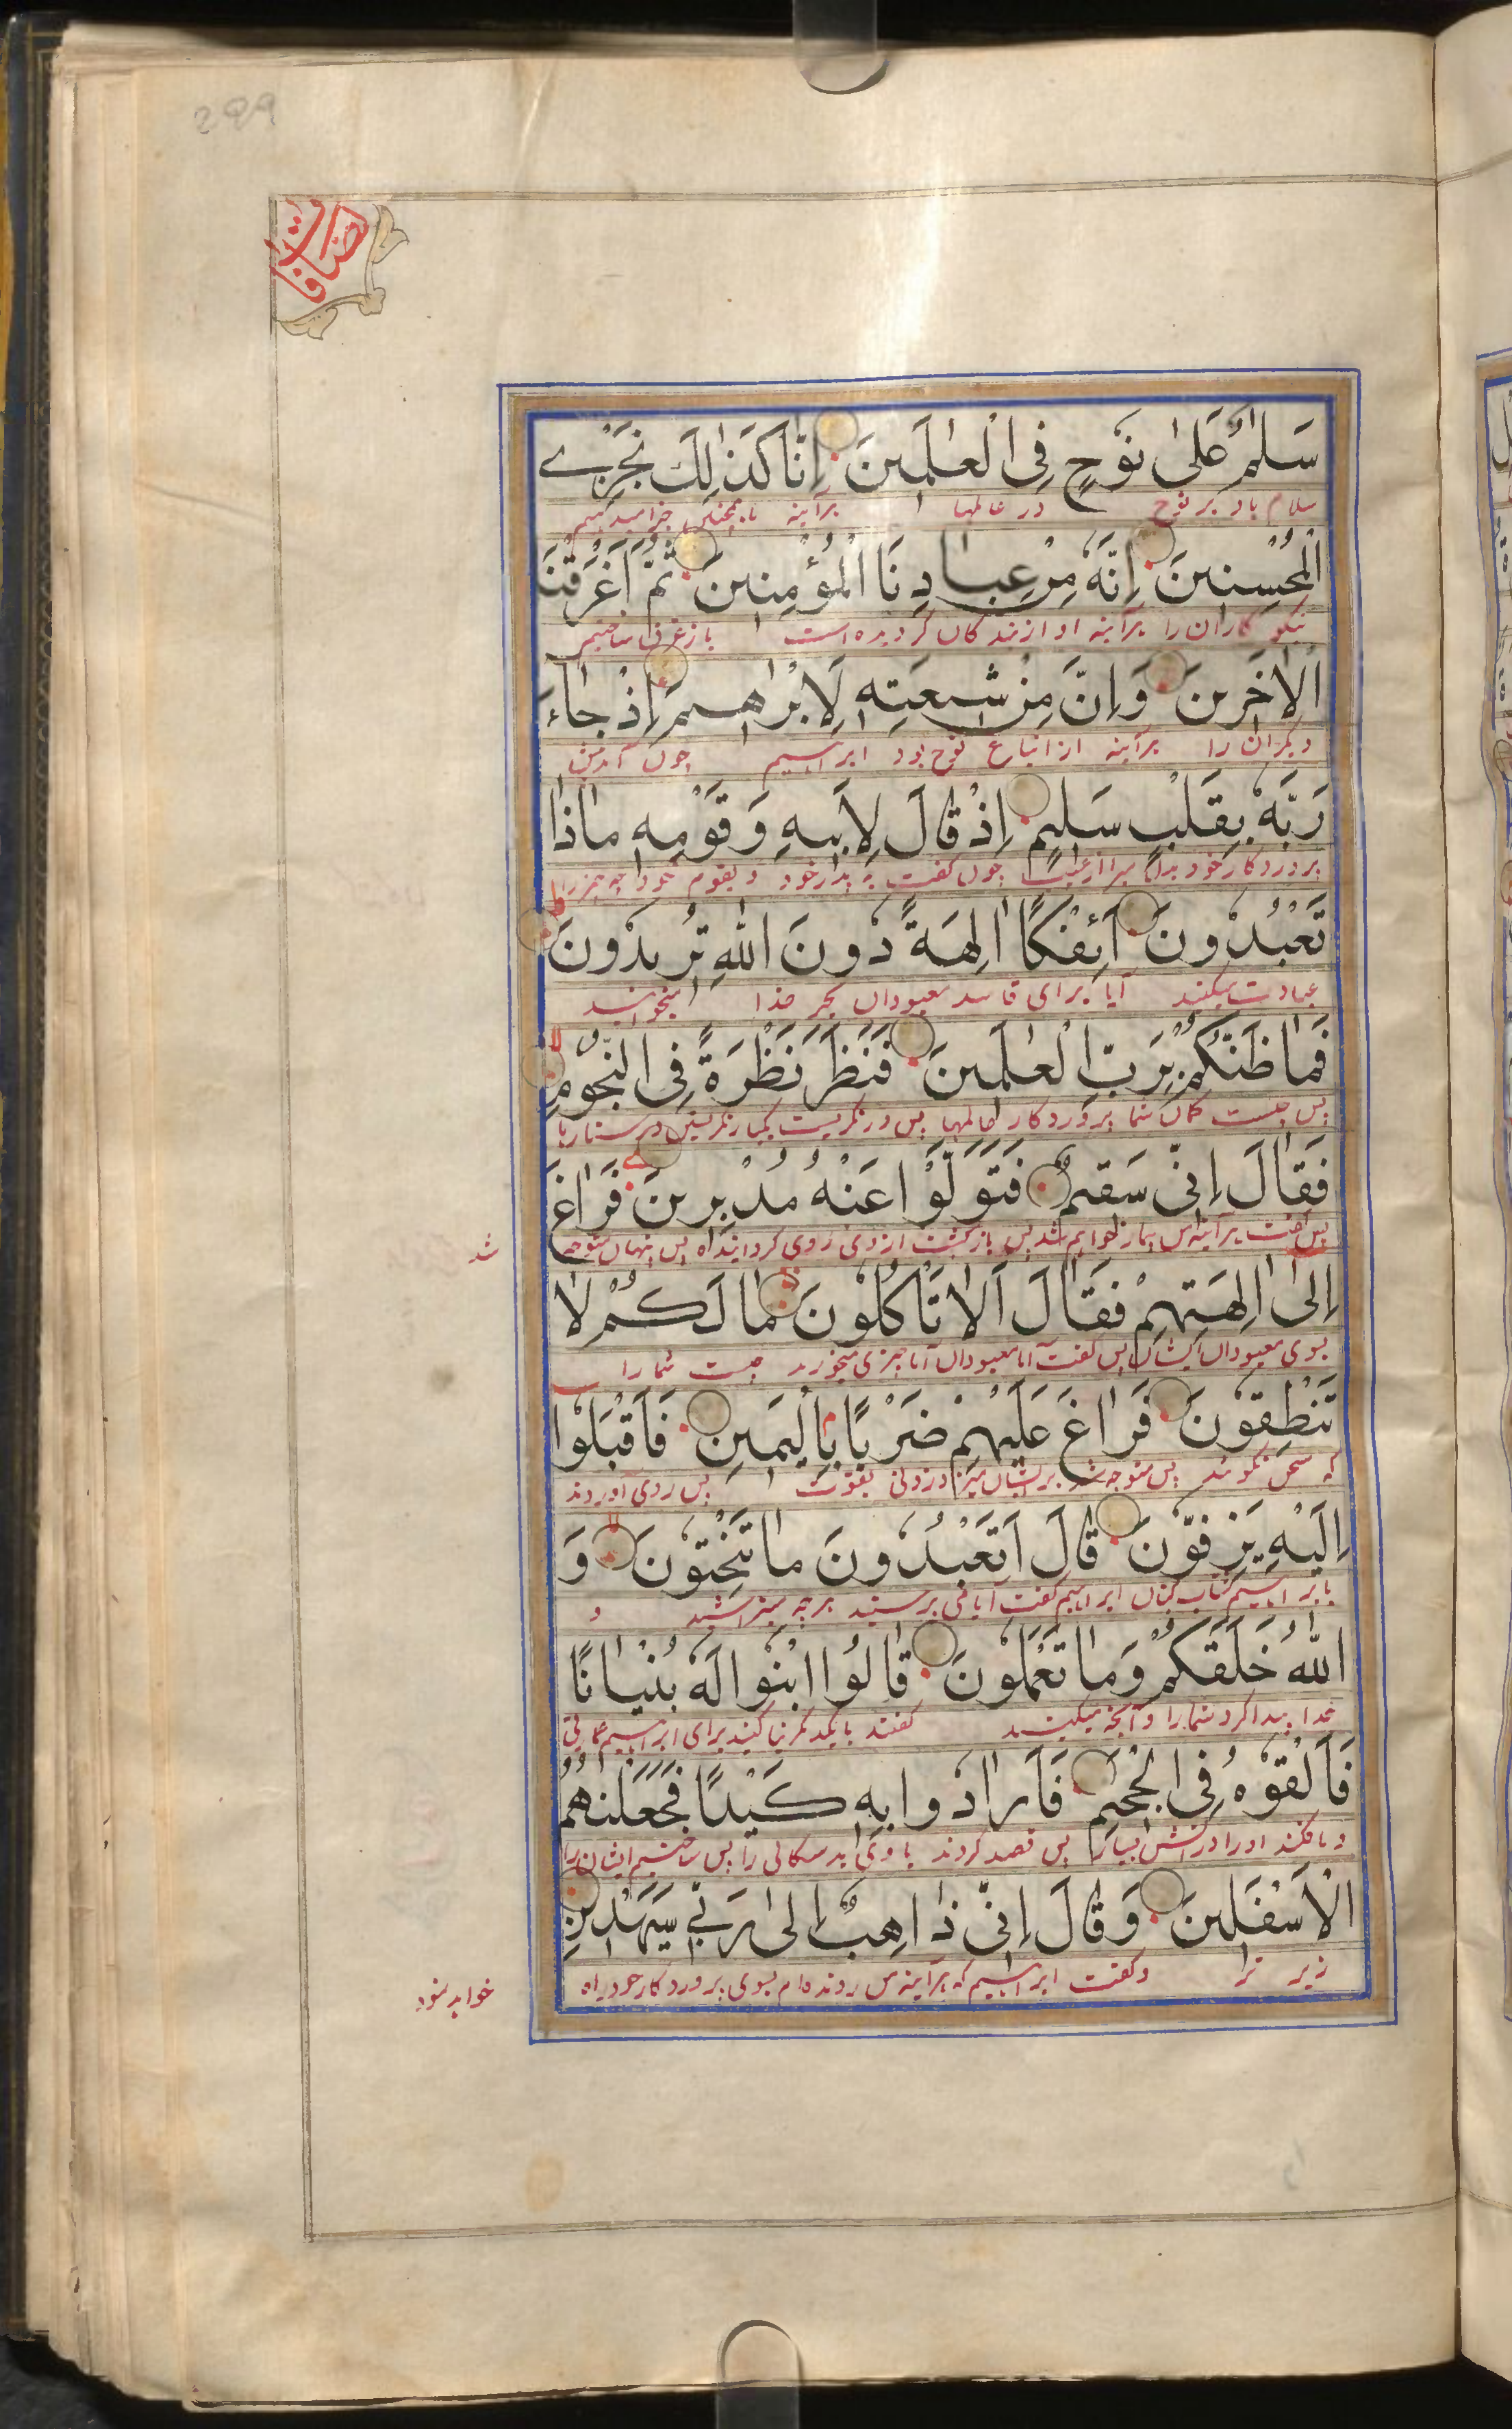 299
صافات
سَلٰمٌ عَلٰى نُوْحٍ فِى الْعٰلَمِيْنَ اِنَّا كَذٰلِكَ نَجْزِے
سلام باد بر نوح در عالمها برآینه ما همچنین جزا میدهیم
الْمُحْسِنِيْنَ اِنَّهٗ مِنْ عِبَادِنَا الْمُؤْمِنِيْنَ ثُمَّ اَغْرَقْنَا
نیکو کاران را برآینه او از بندکان کردیده است باز غرق ساختیم
الْاٰخَرِيْنَ وَاِنَّ مِنْ شِيْعَتِهٖ لَاِبْرٰهِيْمَ اِذْ جَآءَ
دیکران را برآینه از اتباع نوح بود ابراهیم چون آمد پیش
رَبَّهٗ بِقَلْبٍ سَلِيْمٍ اِذْ قَالَ لِاَبِيْهِ وَقَوْمِهٖ مَاذَا
پروردکار خود بدل مبرا از عیب چون کفت به پدر خود و بقوم خود چه چیز را
تَعْبُدُوْنَ اَئِفْكًا اٰلِهَةً دُوْنَ اللّٰهِ تُرِيْدُوْنَ
عبادت میکنید آیا برای فاسد معبودان بجز خدا میخواهید
فَمَا ظَنُّكُمْ بِرَبِّ الْعٰلَمِيْنَ فَنَظَرَ نَظْرَةً فِى النُّجُوْمِ
پس چیست کمان شما پروردکار عالمها پس در نکریست یکبار نکریستن در ستارها
فَقَالَ اِنِّىْ سَقِيْمٌ فَتَوَلَّوْا عَنْهُ مُدْبِرِيْنَ فَرَاغَ
پس کفت برآینه من بیمار خواهم شد پس باز کشت از وی روی کردانیده پس پنهان متوجه
شد
اِلٰى اٰلِهَتِهِمْ فَقَالَ اَلَا تَاْكُلُوْنَ مَا لَكُمْ لَا
بسوی معبودان ایشان پس کفت آیا معبودان آیا چیزی میخورید چیست شما را
تَنْطِقُوْنَ فَرَاغَ عَلَيْهِمْ ضَرْبًا بِالْيَمِيْنِ فَاَقْبَلُوْا
که سخن نکویید پس متوجه شد بر ایشان میزد زدنی بقوت پس روی آوردند
اِلَيْهِ يَزِفُّوْنَ قَالَ اَتَعْبُدُوْنَ مَا تَنْحِتُوْنَ وَ
بابراهیم شتاب کنان ابراهیم کفت آیا می پرستید هرچه میتراشید و
اللّٰهُ خَلَقَكُمْ وَمَا تَعْمَلُوْنَ قَالُوا ابْنُوْا لَهٗ بُنْيَانًا
خدا پیدا کرد شما را و آنچه میکنید کفتند بایکدیکر بنا کنید برای ابراهیم عمارتی
فَاَلْقُوْهُ فِى الْجَحِيْمِ فَاَرَادُوْا بِهٖ كَيْدًا فَجَعَلْنٰهُمُ
و بافکنید او را در آتش بسیار پس قصد کردند با وی بد سکالی را پس ساختیم ایشان را
الْاَسْفَلِيْنَ وَقَالَ اِنِّىْ ذَاهِبٌ اِلٰى رَبِّىْ سَيَهْدِيْنِ
زیر تر و کفت ابراهیم که برآینه من رونده ام بسوی پروردکار خود راه
خواهد نمود